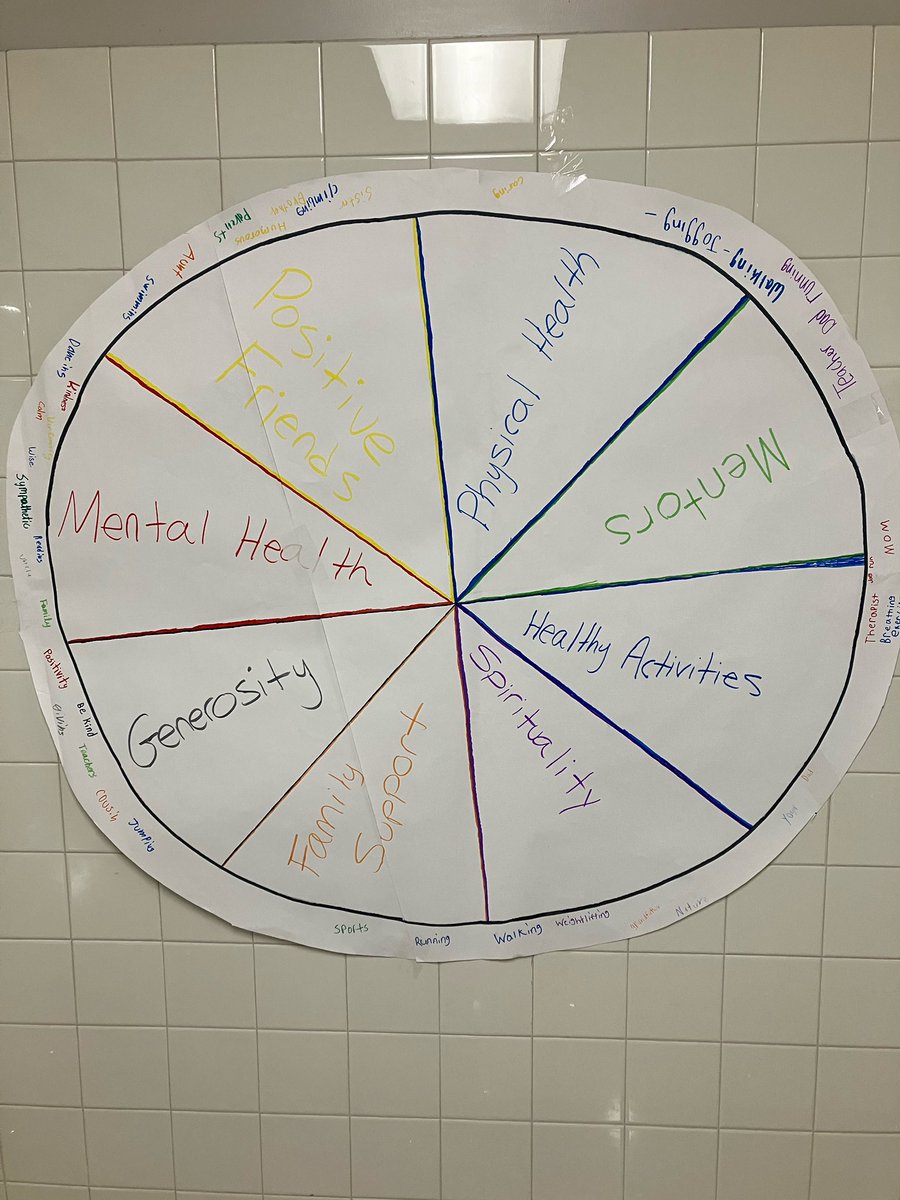 Positive
Friends
Physical Health
Mentors
Healthy Activities
Spirituality
Family
Support
Generosity
Mental Health
caring
Jogging -
Walking -
running
Dad
Teacher
MOM
Therapist
Breathing
Nature
Weightlifting
Walking
Running
Sports
Jumping
cousin
Teachers
Be Kind
Positivity
Family
Reading
Sympathetic
Wise
calm
Kindness
Dancing
Swimming
Aunt
Parents
Humorous
Brother
climbing
Sister